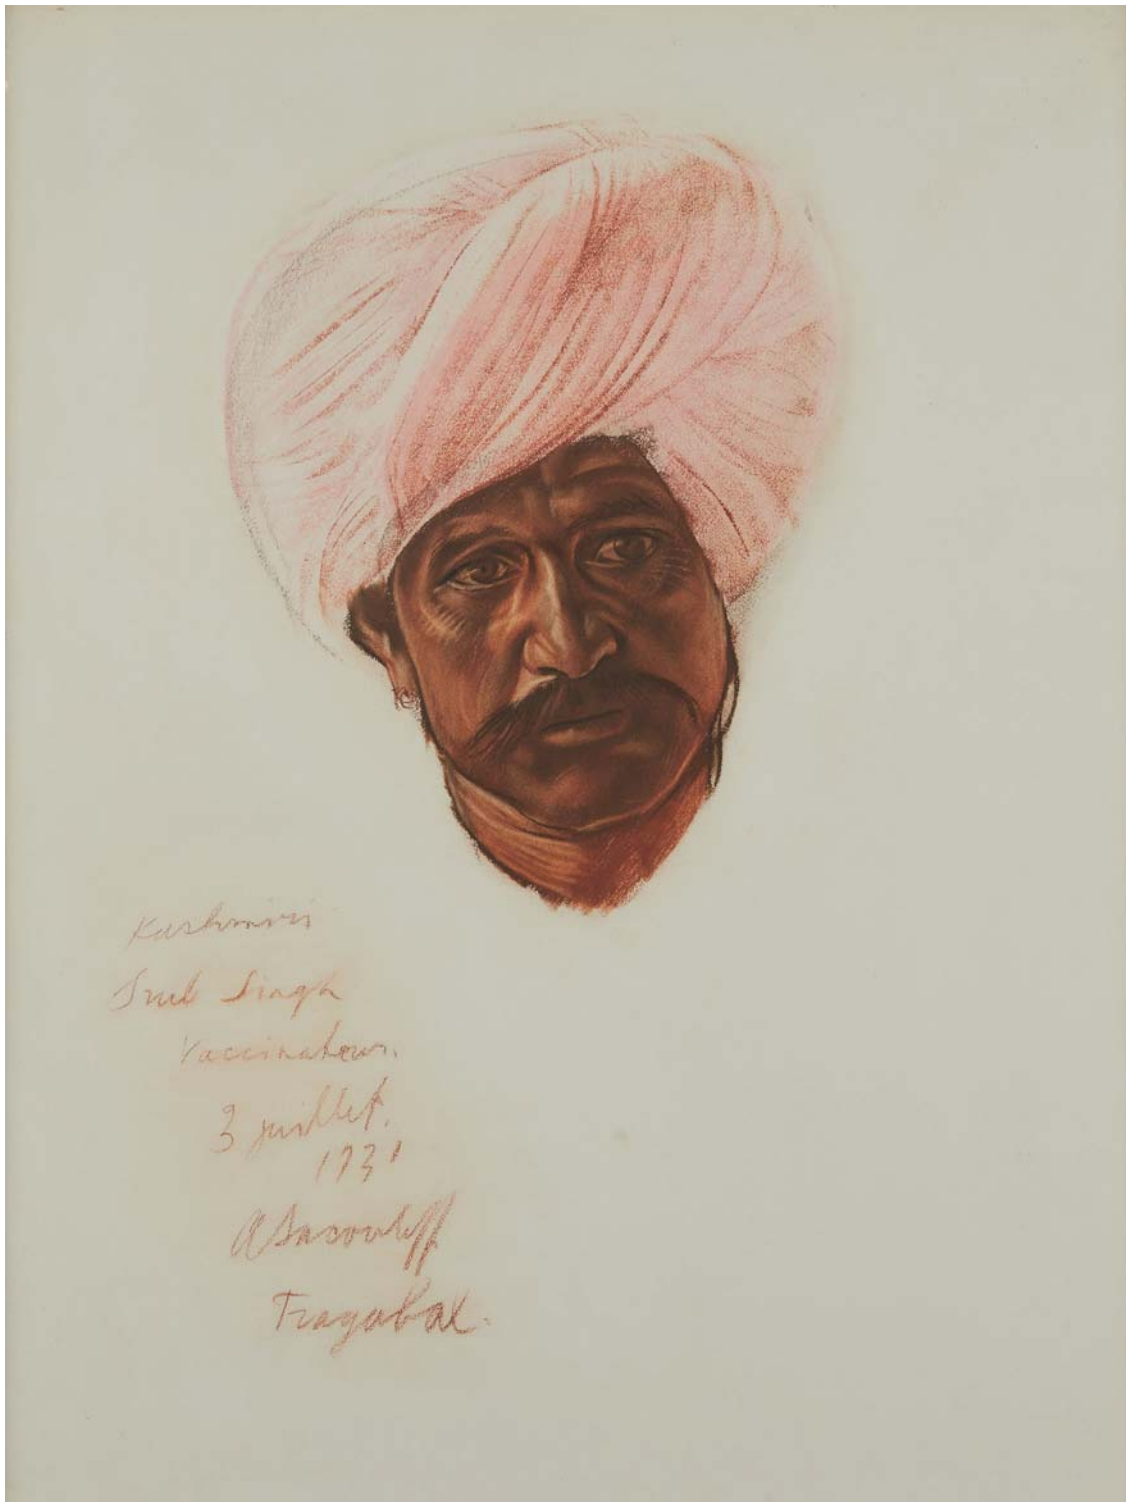 Kashmiri
Singh
Vaccinateur.
3 juillet.
1931
A Iacovleff
Tragabal.